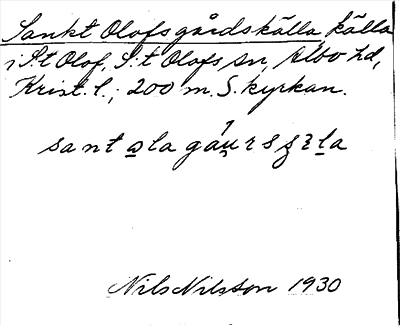 Sankt Olofsgårdskälla källa
i S:t Olof, S:t Olofs sn, Albo hd,
Krist. l.; 200 m. S. kyrkan.
sant ola gáu̯rs
Nils Nilsson 1930